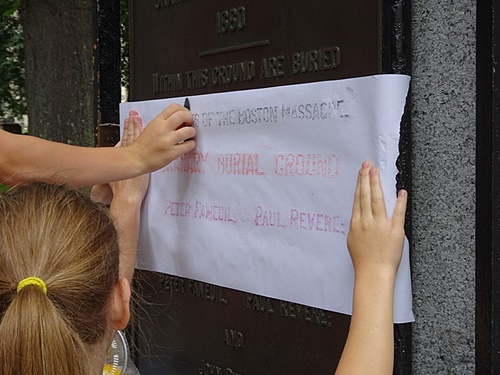 1660
WITHIN THIS GROUND ARE BURIED
OF THE BOSTON MASSACRE
BURIAL GROUND
PETER FANEUIL PAUL REVERE
PETER FANEUIL PAUL REVERE
AND